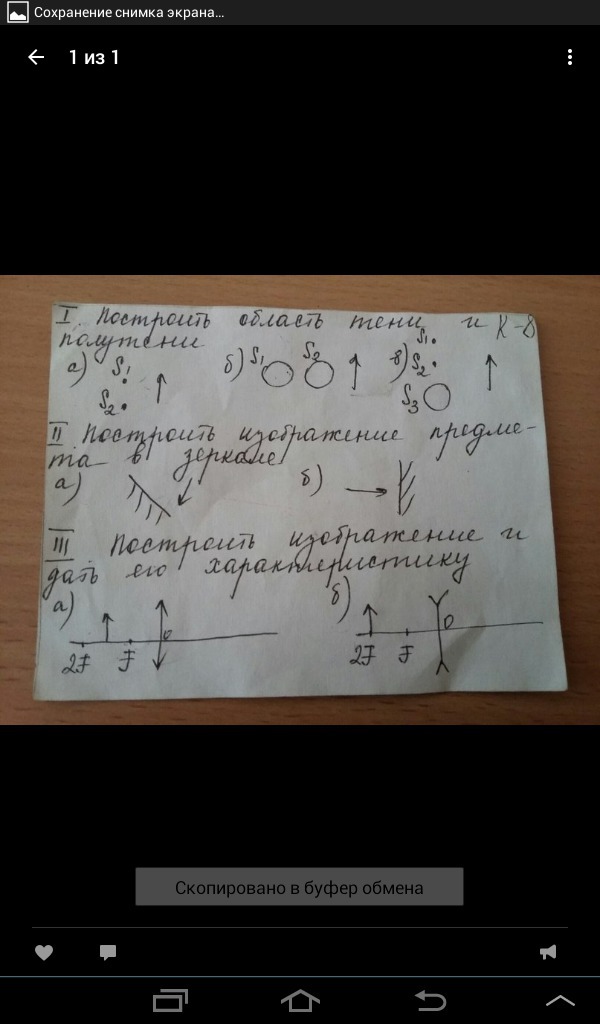 Сохранение снимка экрана...
1 из 1
I. Построить область тени и К-8
полутени
а) S1 S2 б) S1 S2 в) S1 S2 S3
II Построить изображение предме-
та в зеркале
а) б)
III Построить изображение и
дать его характеристику
а) б)
2F F 0 2F F 0
Скопировано в буфер обмена